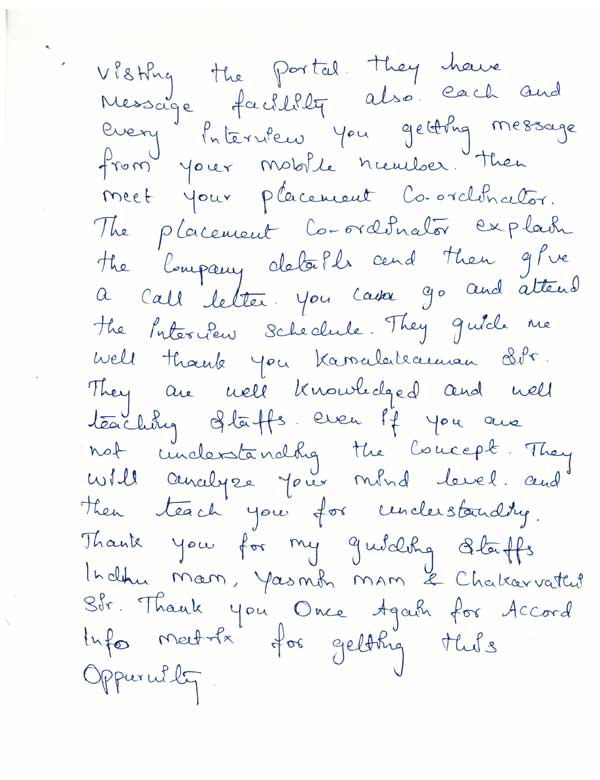 visting the portal. they have
Message facility also. each and
every interview you getting message
from your mobile number. then
meet your placement Co-ordinator.
The placement Co-ordinator explain
the Company details and then give
a call letter. you can go and attend
the interview schedule. They guide me
well thank you Kamalakannan Sir.
They are well knowledged and well
teaching Staffs. even if you are
not understanding the concept. They
will analyze your mind level. and
then teach you for understanding.
Thank you for my guiding Staffs
Indhu mam, Yasmin MAM & Chakarvathi
Sir. Thank you Once Again for Accord
Info matrix for getting this
Oppurnity.